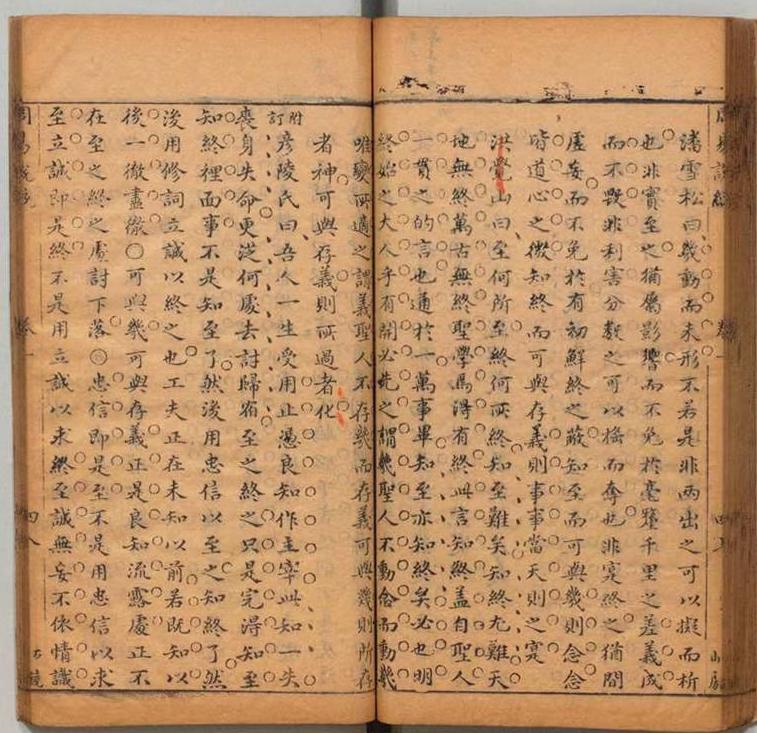 潘雪松曰幾動而未形不若是非兩出之可以擬而析
也非實至之猶屬影響而不免於毫釐千里之差義成
而不毀非利害分數之可以搖而奪也非寔終之猶間
虛妄而不免於有初鮮終之蔽知至而可與幾則念念
皆道心之微知終而可與存義則事事當天則之寔
洪覺山曰至何所至終何所終知至難矣知終尤難天
地無終萬古無終聖學焉得有終此言知終蓋自聖人
一貫之的言也通於一萬事畢知至亦知終矣必也明
終始之大人乎有開必先之謂幾聖人不動念而動幾
唯變所適之謂義聖人不存幾而存義可與幾則所存
者神可與存義則所過者化
附訂
彥陵氏曰吾人一生受用止憑良知作主宰此知一失
喪身失命更從何處去討歸宿至之終之只是完得知至
知終裡面事不是知至了然後用忠信以至之知終了然
後用修詞立誠以終之也工夫正在未知以前若既知以
後一徹盡徹可與幾可與存義正是良知流露處正不
在至之終之處討下落忠信即是至不是用忠信以求
至立誠即是終不是用立誠以求終至誠無妄不依情識
卷一
四八
石鏡
山房